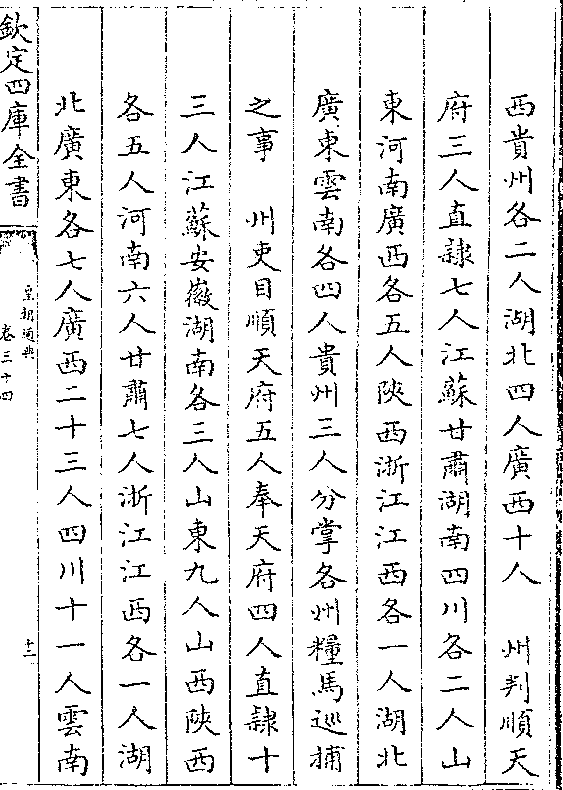 西貴州各二人湖北四人廣西十人　州判順天
府三人直隸七人江蘇甘肅湖南四川各二人山
東河南廣西各五人陝西浙江江西各一人湖北
廣東雲南各四人貴州三人分掌各州糧馬巡捕
之事　州吏目順天府五人奉天府四人直隸十
三人江蘇安徽湖南各三人山東九人山西陝西
各五人河南六人甘肅七人浙江江西各一人湖
北廣東各七人廣西二十三人四川十一人雲南
欽定四庫全書
皇朝通典
卷三十四
十二